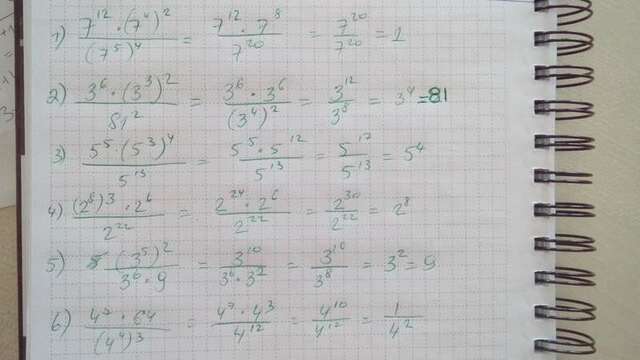 1) \frac{7^{12} \cdot (7^4)^2}{(7^5)^4} = \frac{7^{12} \cdot 7^8}{7^{20}} = \frac{7^{20}}{7^{20}} = 1
2) \frac{3^6 \cdot (3^3)^2}{81^2} = \frac{3^6 \cdot 3^6}{(3^4)^2} = \frac{3^{12}}{3^8} = 3^4 = 81
3) \frac{5^5 \cdot (5^3)^4}{5^{13}} = \frac{5^5 \cdot 5^{12}}{5^{13}} = \frac{5^{17}}{5^{13}} = 5^4
4) \frac{(2^8)^3 \cdot 2^6}{2^{22}} = \frac{2^{24} \cdot 2^6}{2^{22}} = \frac{2^{30}}{2^{22}} = 2^8
5) \frac{(3^5)^2}{3^6 \cdot 9} = \frac{3^{10}}{3^6 \cdot 3^2} = \frac{3^{10}}{3^8} = 3^2 = 9
6) \frac{4^7 \cdot 64}{(4^4)^3} = \frac{4^7 \cdot 4^3}{4^{12}} = \frac{4^{10}}{4^{12}} = \frac{1}{4^2}